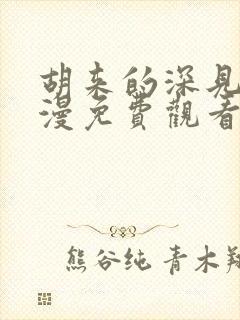 胡来的深見
漫免費觀看
熊谷纯 青木翔